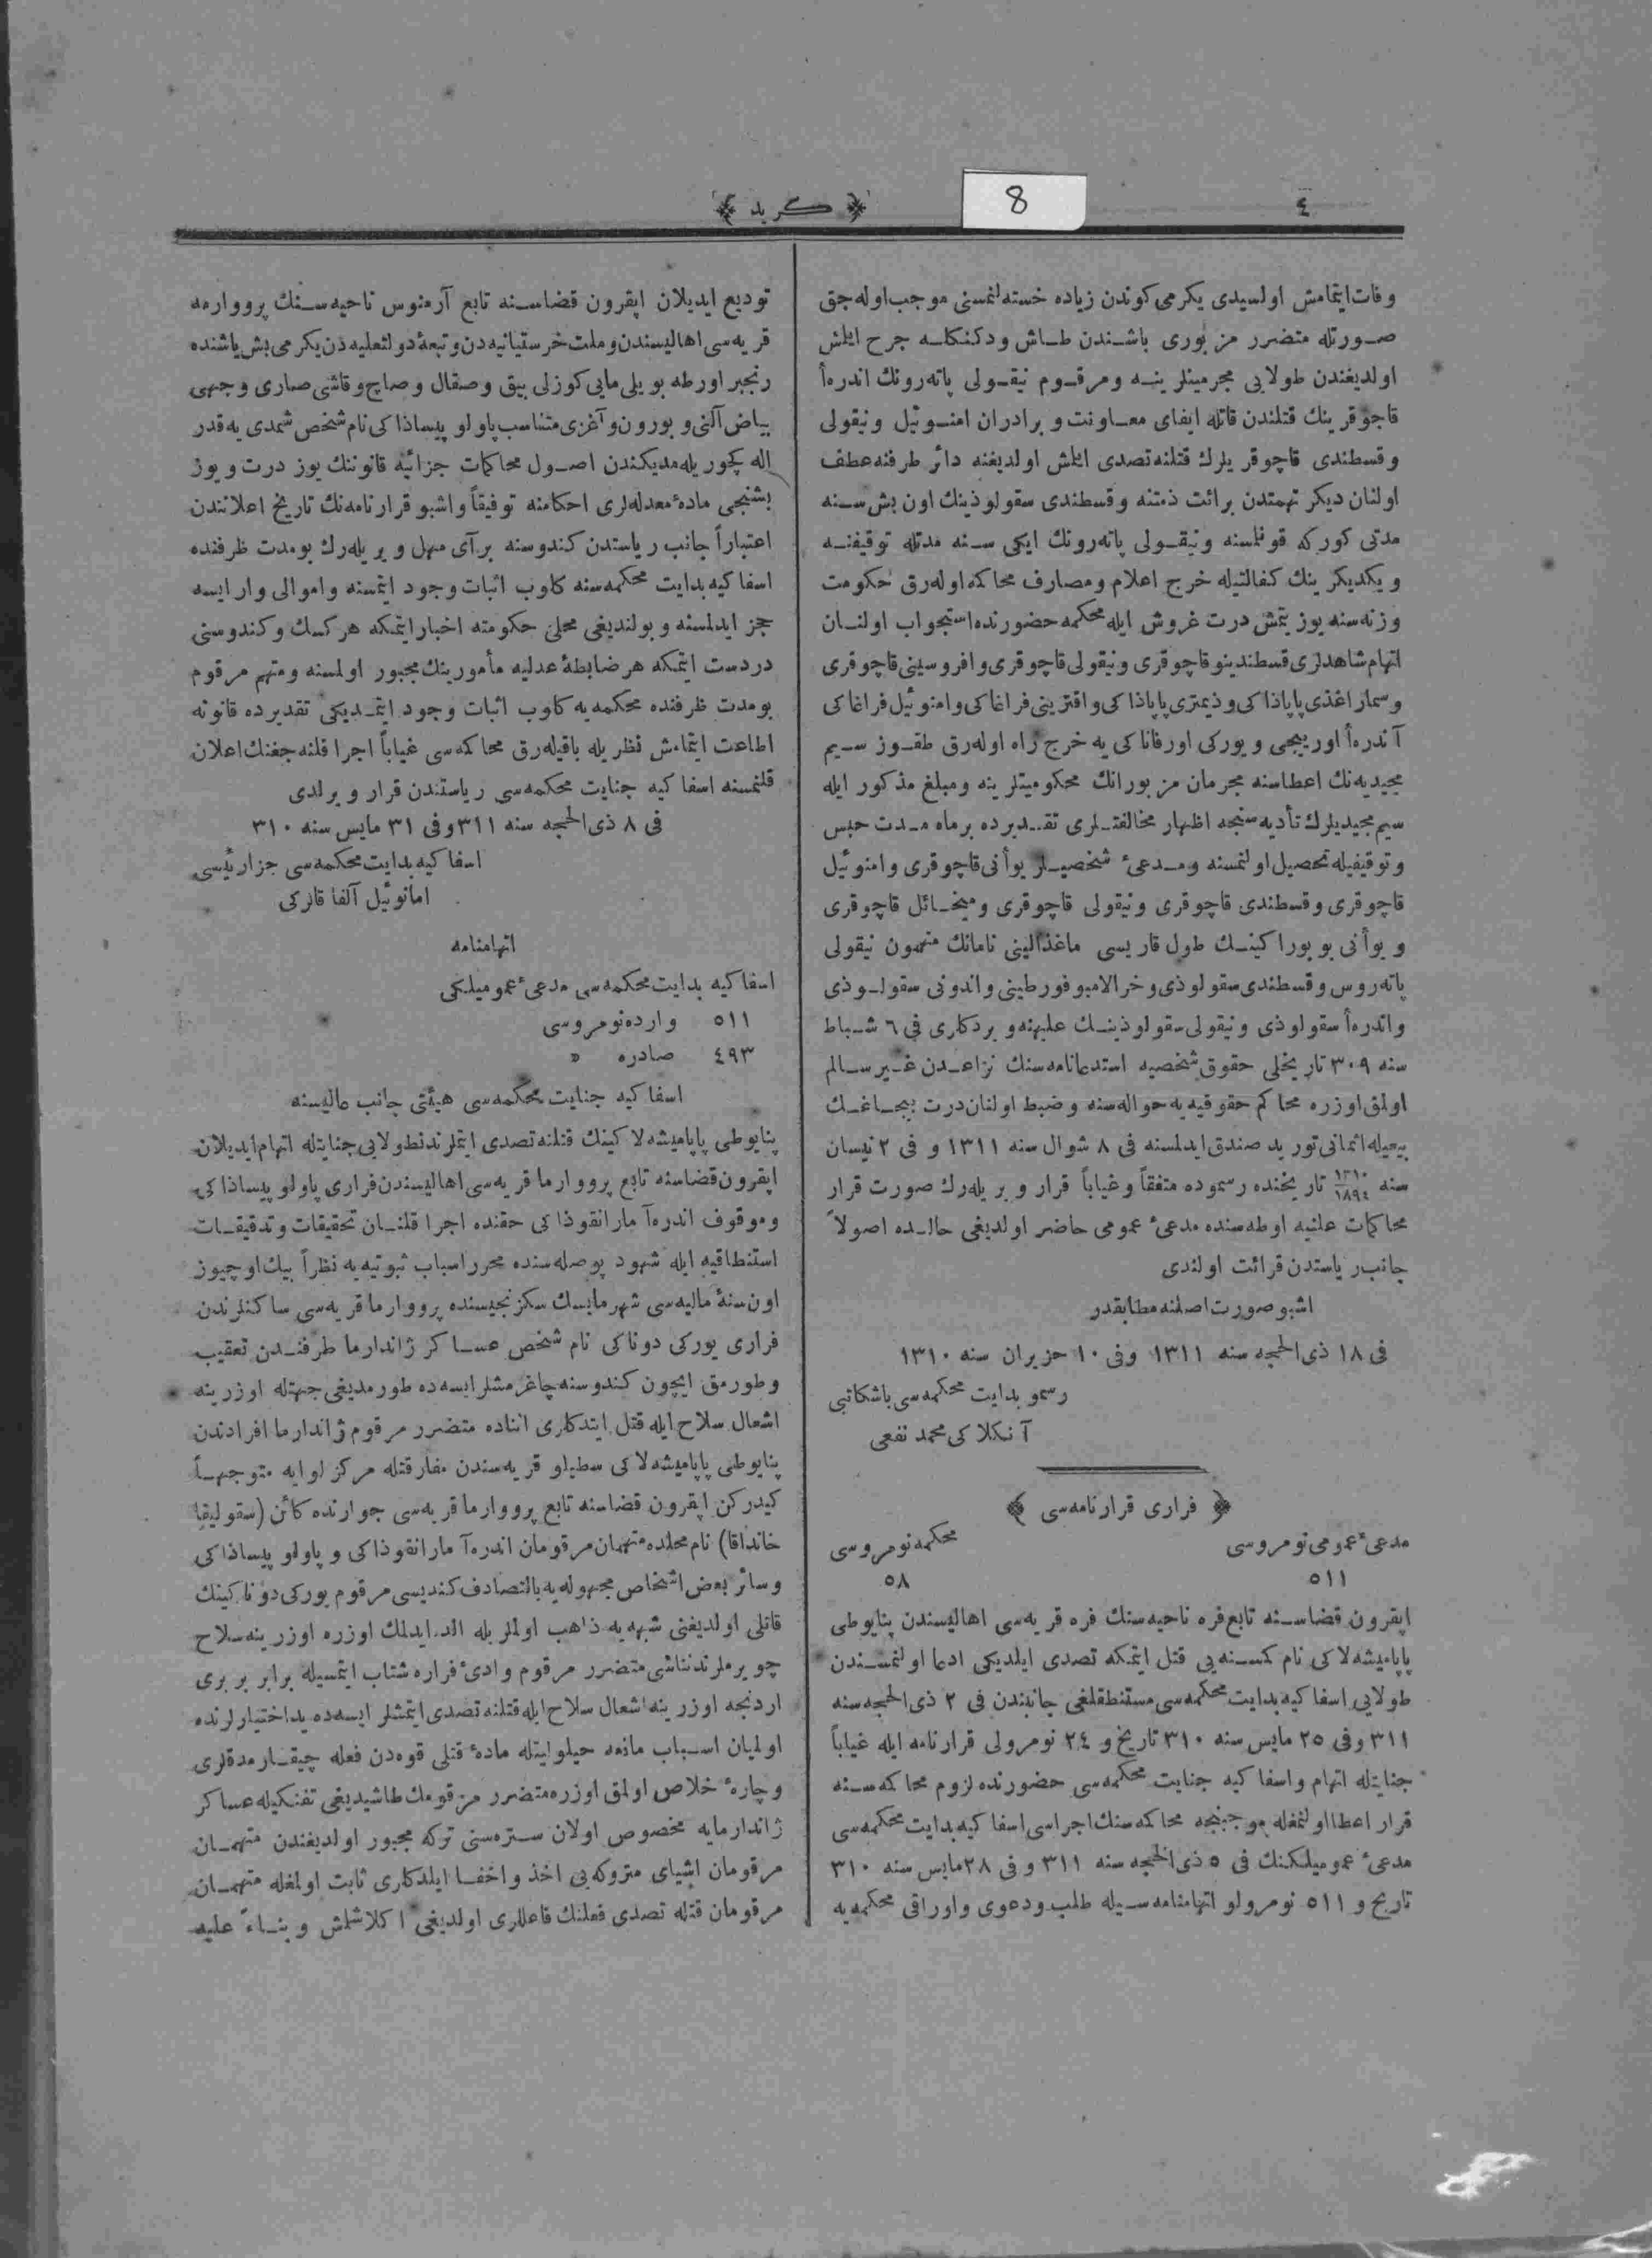 ٤
8
﴿ كريد ﴾
وفات ايتمامش اولسيدى يكرمى كوندن زياده خسته لنمسنى موجب اوله جق
صورتله متضرر مزبورى باشندن طاش ودكنكله جرح ايلمش
اولديغندن طولايى مجرميتلرينه ومرقوم نيقولى پاته رونك اندرهأ
قاچوقرينك قتلندن قاتله ايفاى معاونت و برادران امنوئيل ونيقولى
وقسطندى قاچوقريلرك قتلنه تصدى ايلمش اولديغنه دائر طرفنه عطف
اولنان ديكر تهمتدن برائت ذمتنه وقسطندى سقولوذينك اون بش سنه
مدتى كوركه قونلمسنه ونيقولى پاته رونك ايكى سنه مدتله توقيفنه
ويكديكرينك كفالتيله خرج اعلام ومصارف محاكمه اوله رق حكومت
وزنه سنه يوز يتمش درت غروش ايله محكمه حضورنده استجواب اولنان
اتهام شاهدلرى قسطندينو قاچوقرى ونيقولى قاچوقرى وافروسينى قاچوقرى
وسماراغذى پاپاذاكى وذيمترى پاپاذاكى واقترينى فراغاكى وامنوئيل فراغاكى
آندرهأ اوربيجى ويوركى اورفاناكى يه خرج راه اوله رق طقوز سيم
مجيديه نك اعطاسنه مجرمان مزبورانك محكوميتلرينه ومبلغ مذكور ايله
سيم مجيديلرك تأديه سنجه اظهار مخالفتلرى تقديرده برماه مدت حبس
وتوقيفيله تحصيل اولنمسنه ومدعئ شخصيلر يوأنى قاچوقرى وامنوئيل
قاچوقرى وقسطندى قاچوقرى ونيقولى قاچوقرى وميخائل قاچوقرى
ويوأنى بوبوراكينك طول قاريسى ماغذالينى نامانك متهمون نيقولى
پاته روس وقسطندى سقولوذى وخرالامبو فورطينى واندونى سقولوذى
واندرهأ سقولوذى ونيقولى سقولوذينك عليهنه ويردكارى فى ٦ شباط
سنه ٣٠٩ تاريخلى حقوق شخصيه استدعانامه سنك نزاعدن غير سالم
اولمق اوزره محاكم حقوقيه يه حواله سنه وضبط اولنان درت بيچاغك
بيعيله اثمانى توريد صندق ايدلمسنه فى ٨ شوال سنه ١٣١١ و فى ٢ نيسان
سنه ١٣١٠/١٨٩٤ تاريخنده رسموده متفقاً وغياباً قرار ويريله رك صورت قرار
محاكمات علنيه اوطه سنده مدعئ عمومى حاضر اولديغى حالده اصولاً
جانب رياستدن قرائت اولندى
اشبو صورت اصلنه مطابقدر
فى ١٨ ذى الحجه سنه ١٣١١ وفى ١٠ حزيران سنه ١٣١٠
رسمو بدايت محكمه سى باشكاتبى
آنكلاكى محمد نفعى
﴿ فرارى قرارنامه سى ﴾
مدعئ عمومى نومروسى محكمه نومروسى
٥١١ ٥٨
اپقرون قضاسنه تابع فره ناحيه سنك فره قريه سى اهاليسندن پنايوطى
پاپاميشه لاكى نام كمسنه يى قتل ايتمكه تصدى ايلديكى ادعا اولنمسندن
طولايى اسفاكيه بدايت محكمه سى مستنطقلغى جانبندن فى ٢ ذى الحجه سنه
٣١١ وفى ٢٥ مايس سنه ٣١٠ تاريخ و ٢٤ نومرولى قرارنامه ايله غياباً
جنايتله اتهام واسفاكيه جنايت محكمه سى حضورنده لزوم محاكمه سنه
قرار اعطا اولنمغله موجبنجه محاكمه سنك اجراسى اسفاكيه بدايت محكمه سى
مدعئ عموميلكنك فى ٥ ذى الحجه سنه ٣١١ وفى ٢٨ مايس سنه ٣١٠
تاريخ و ٥١١ نومرولو اتهامنامه سيله طلب ودعوى واوراقى محكمه يه
توديع ايديلان اپقرون قضاسنه تابع آرمنوس ناحيه سنك پرووارمه
قريه سى اهاليسندن وملت خرستيانيه دن وتبعهٔ دولتعليه دن يكرمى بش ياشنده
رنجبر اورطه بويلى مايى كوزلى بيق وصقال وصاچ وقاشى صارى وجهى
بياض آلنى وبورون وآغزى متناسب پاولو پيساذاكى نام شخص شمدى يه قدر
اله كچوريله مديكندن اصول محاكمات جزائيه قانوننك يوز درت ويوز
بشنجى مادهٔ معدله لرى احكامنه توفيقاً واشبو قرارنامه نك تاريخ اعلانندن
اعتباراً جانب رياستدن كندوسنه برآى مهل ويريله رك بومدت ظرفنده
اسفاكيه بدايت محكمه سنه كلوب اثبات وجود ايتمسنه واموالى وارايسه
حجز ايدلمسنه وبولنديغى محلى حكومته اخبار ايتمكه هركسك وكندوسنى
دردست ايتمكه هرضابطهٔ عدليه مأمورينك مجبور اولمسنه ومتهم مرقوم
بومدت ظرفنده محكمه يه كلوب اثبات وجود ايتمديكى تقديرده قانونه
اطاعت ايتمامش نظريله باقيله رق محاكمه سى غياباً اجرا قلنه جغنك اعلان
قلنمسنه اسفاكيه جنايت محكمه سى رياستندن قرار ويرلدى
فى ٨ ذى الحجه سنه ٣١١ وفى ٣١ مايس سنه ٣١٠
اسفاكيه بدايت محكمه سى جزا رئيسى
امانوئيل آلفا قالركى
اتهامنامه
اسفاكيه بدايت محكمه سى مدعئ عموميلكى
٥١١ وارده نومروسى
٤٩٣ صادره »
اسفاكيه جنايت محكمه سى هيئتى جانب عاليسنه
پنايوطى پاپاميشه لاكينك قتلنه تصدى ايتملرندن طولايى جنايتله اتهام ايديلان
اپقرون قضاسنه تابع پرووارما قريه سى اهاليسندن فرارى پاولو پيساذاكى
وموقوف اندرهآ مارانقوذاكى حقنده اجرا قلنان تحقيقات وتدقيقات
استنطاقيه ايله شهود پوصله سنده محرر اسباب ثبوتيه يه نظراً بيك اوچيوز
اون سنهٔ ماليه سى شهر مايسك سكزنجيسنده پرووارما قريه سى ساكنلرندن
فرارى يوركى دوناكى نام شخص عساكر ژاندارما طرفندن تعقيب
وطورمق ايچون كندوسنه چاغرمشلر ايسه ده طورمديغى جهتله اوزرينه
اشعال سلاح ايله قتل ايتدكارى اثناده متضرر مرقوم ژاندارما افرادندن
پنايوطى پاپاميشه لاكى سطيلو قريه سندن مفارقتله مركز لوايه متوجهاً
كيدركن اپقرون قضاسنه تابع پرووارما قريه سى جوارنده كائن (سقوليقا
خانداقا) نام محلده متهمان مرقومان اندرهآ مارانقوذاكى و پاولو پيساذاكى
وسائر بعض اشخاص مجهوله يه بالتصادف كنديسى مرقوم يوركى دوناكينك
قاتلى اولديغنى شبهه يه ذاهب اولملريله الد ايدلمك اوزره اوزرينه سلاح
چويرملرندن ناشى متضرر مرقوم وادئ فراره شتاب ايتمسيله برابر بربرى
اردنجه اوزرينه اشعال سلاح ايله قتلنه تصدى ايتمشلر ايسه ده يد اختيارلرنده
اولميان اسباب مانعه حيلولتيله مادهٔ قتلى قوه دن فعله چيقارمدقلرى
وچارهٔ خلاص اولمق اوزره متضرر مرقومك طاشيديغى تفنكيله عساكر
ژاندارمايه مخصوص اولان ستره سنى تركه مجبور اولديغندن متهمان
مرقومان اشياى متروكه يى اخذ واخفا ايلدكارى ثابت اولمغله متهمان
مرقومان قتله تصدى فعلنك فاعللرى اولديغى اكلاشلمش وبناءً عليه